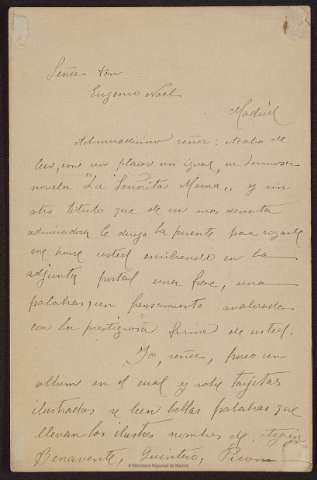 Señor Don
Eugenio Noel
Madrid
Admiradísimo señor: Acabo de
leer, con un placer sin igual, su hermosa
novela "La Señorita Mama", y sin
otro título que de su más devota
admiradora le dirijo la presente para rogarle
me honre usted escribiendo en la
adjunta postal una frase, una
palabra, un pensamiento avalorado
con la prestigiosa firma de usted.
Yo, señor, poseo un
album en el cual y sobre tarjetas
ilustradas se leen bellas palabras que
llevan los ilustres nombres de
Benavente, Quintero, Picón
© Biblioteca Regional de Madrid